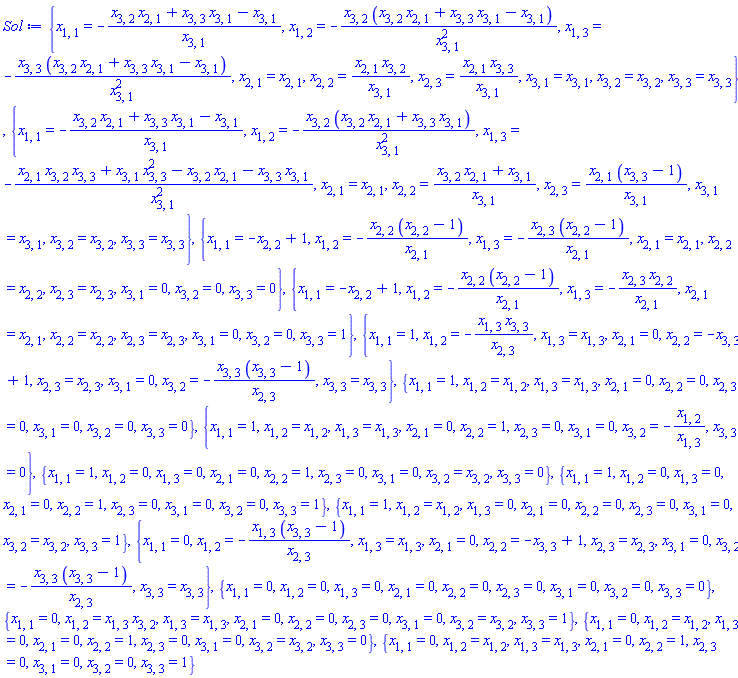 Sol := {x_{1,1} = -\frac{x_{3,2} x_{2,1} + x_{3,3} x_{3,1} - x_{3,1}}{x_{3,1}}, x_{1,2} = -\frac{x_{3,2} (x_{3,2} x_{2,1} + x_{3,3} x_{3,1} - x_{3,1})}{x_{3,1}^2}, x_{1,3} =
-\frac{x_{3,3} (x_{3,2} x_{2,1} + x_{3,3} x_{3,1} - x_{3,1})}{x_{3,1}^2}, x_{2,1} = x_{2,1}, x_{2,2} = \frac{x_{2,1} x_{3,2}}{x_{3,1}}, x_{2,3} = \frac{x_{2,1} x_{3,3}}{x_{3,1}}, x_{3,1} = x_{3,1}, x_{3,2} = x_{3,2}, x_{3,3} = x_{3,3}}
, {x_{1,1} = -\frac{x_{3,2} x_{2,1} + x_{3,3} x_{3,1} - x_{3,1}}{x_{3,1}}, x_{1,2} = -\frac{x_{3,2} (x_{3,2} x_{2,1} + x_{3,3} x_{3,1})}{x_{3,1}^2}, x_{1,3} =
-\frac{x_{2,1} x_{3,2} x_{3,3} + x_{3,1} x_{3,3}^2 - x_{3,2} x_{2,1} - x_{3,3} x_{3,1}}{x_{3,1}^2}, x_{2,1} = x_{2,1}, x_{2,2} = \frac{x_{3,2} x_{2,1} + x_{3,1}}{x_{3,1}}, x_{2,3} = \frac{x_{2,1} (x_{3,3} - 1)}{x_{3,1}}, x_{3,1}
= x_{3,1}, x_{3,2} = x_{3,2}, x_{3,3} = x_{3,3}}, {x_{1,1} = -x_{2,2} + 1, x_{1,2} = -\frac{x_{2,2} (x_{2,2} - 1)}{x_{2,1}}, x_{1,3} = -\frac{x_{2,3} (x_{2,2} - 1)}{x_{2,1}}, x_{2,1} = x_{2,1}, x_{2,2}
= x_{2,2}, x_{2,3} = x_{2,3}, x_{3,1} = 0, x_{3,2} = 0, x_{3,3} = 0}, {x_{1,1} = -x_{2,2} + 1, x_{1,2} = -\frac{x_{2,2} (x_{2,2} - 1)}{x_{2,1}}, x_{1,3} = -\frac{x_{2,3} x_{2,2}}{x_{2,1}}, x_{2,1}
= x_{2,1}, x_{2,2} = x_{2,2}, x_{2,3} = x_{2,3}, x_{3,1} = 0, x_{3,2} = 0, x_{3,3} = 1}, {x_{1,1} = 1, x_{1,2} = -\frac{x_{1,3} x_{3,3}}{x_{2,3}}, x_{1,3} = x_{1,3}, x_{2,1} = 0, x_{2,2} = -x_{3,3}
+ 1, x_{2,3} = x_{2,3}, x_{3,1} = 0, x_{3,2} = -\frac{x_{3,3} (x_{3,3} - 1)}{x_{2,3}}, x_{3,3} = x_{3,3}}, {x_{1,1} = 1, x_{1,2} = x_{1,2}, x_{1,3} = x_{1,3}, x_{2,1} = 0, x_{2,2} = 0, x_{2,3}
= 0, x_{3,1} = 0, x_{3,2} = 0, x_{3,3} = 0}, {x_{1,1} = 1, x_{1,2} = x_{1,2}, x_{1,3} = x_{1,3}, x_{2,1} = 0, x_{2,2} = 1, x_{2,3} = 0, x_{3,1} = 0, x_{3,2} = -\frac{x_{1,2}}{x_{1,3}}, x_{3,3}
= 0}, {x_{1,1} = 1, x_{1,2} = 0, x_{1,3} = 0, x_{2,1} = 0, x_{2,2} = 1, x_{2,3} = 0, x_{3,1} = 0, x_{3,2} = x_{3,2}, x_{3,3} = 0}, {x_{1,1} = 1, x_{1,2} = 0, x_{1,3} = 0,
x_{2,1} = 0, x_{2,2} = 1, x_{2,3} = 0, x_{3,1} = 0, x_{3,2} = 0, x_{3,3} = 1}, {x_{1,1} = 1, x_{1,2} = x_{1,2}, x_{1,3} = 0, x_{2,1} = 0, x_{2,2} = 0, x_{2,3} = 0, x_{3,1} = 0,
x_{3,2} = x_{3,2}, x_{3,3} = 1}, {x_{1,1} = 0, x_{1,2} = -\frac{x_{1,3} (x_{3,3} - 1)}{x_{2,3}}, x_{1,3} = x_{1,3}, x_{2,1} = 0, x_{2,2} = -x_{3,3} + 1, x_{2,3} = x_{2,3}, x_{3,1} = 0, x_{3,2}
= -\frac{x_{3,3} (x_{3,3} - 1)}{x_{2,3}}, x_{3,3} = x_{3,3}}, {x_{1,1} = 0, x_{1,2} = 0, x_{1,3} = 0, x_{2,1} = 0, x_{2,2} = 0, x_{2,3} = 0, x_{3,1} = 0, x_{3,2} = 0, x_{3,3} = 0},
{x_{1,1} = 0, x_{1,2} = x_{1,3} x_{3,2}, x_{1,3} = x_{1,3}, x_{2,1} = 0, x_{2,2} = 0, x_{2,3} = 0, x_{3,1} = 0, x_{3,2} = x_{3,2}, x_{3,3} = 1}, {x_{1,1} = 0, x_{1,2} = x_{1,2}, x_{1,3}
= 0, x_{2,1} = 0, x_{2,2} = 1, x_{2,3} = 0, x_{3,1} = 0, x_{3,2} = x_{3,2}, x_{3,3} = 0}, {x_{1,1} = 0, x_{1,2} = x_{1,2}, x_{1,3} = x_{1,3}, x_{2,1} = 0, x_{2,2} = 1, x_{2,3}
= 0, x_{3,1} = 0, x_{3,2} = 0, x_{3,3} = 1}